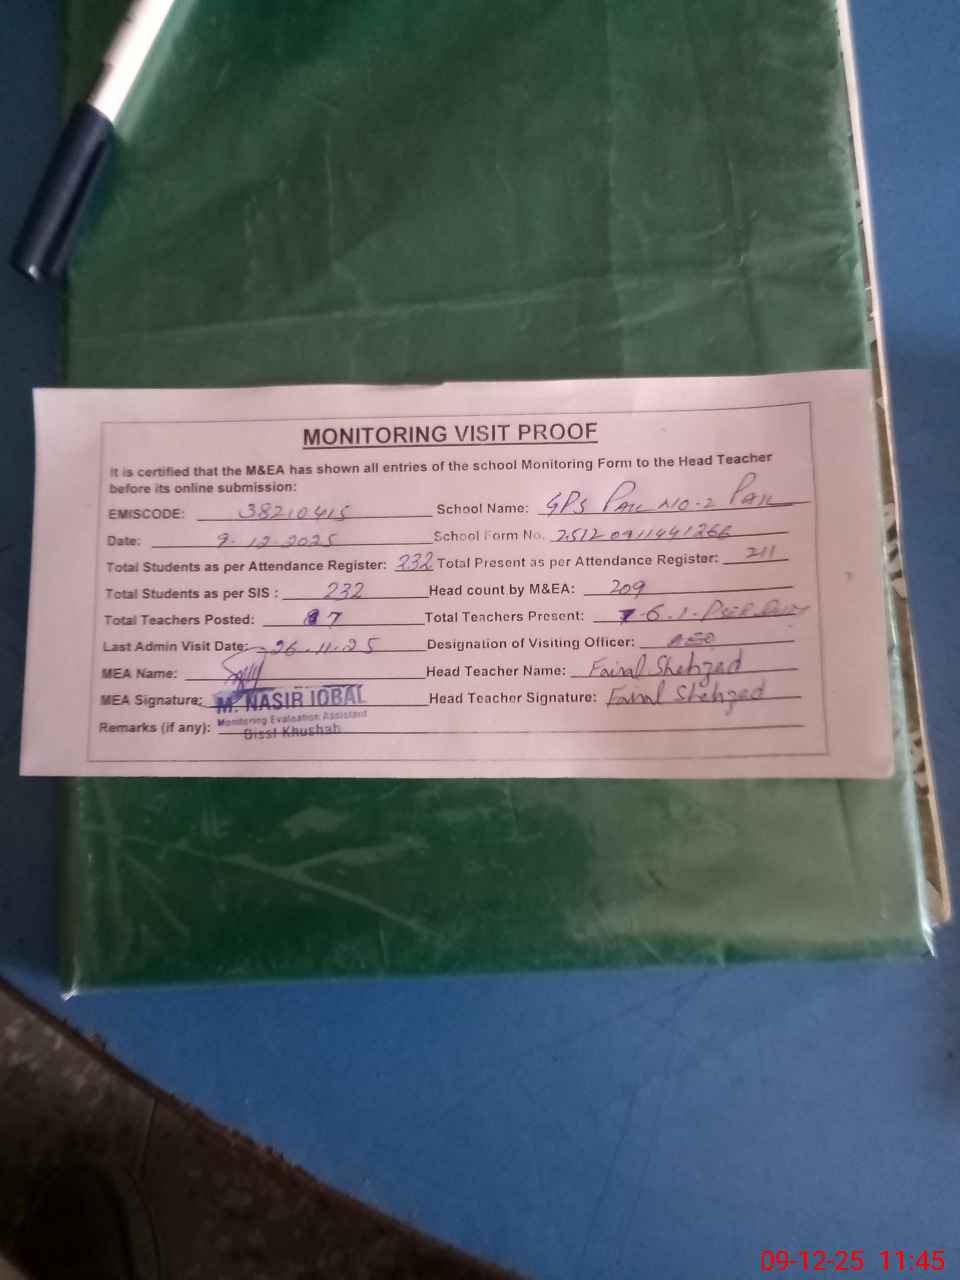 MONITORING VISIT PROOF
It is certified that the M&EA has shown all entries of the school Monitoring Form to the Head Teacher
before its online submission:
EMISCODE: 38210415 School Name: GPS Pail NO-2 Pail
Date: 9-12-2025 School Form No. 25120911441266
Total Students as per Attendance Register: 232 Total Present as per Attendance Register: 211
Total Students as per SIS : 232 Head count by M&EA: 209
Total Teachers Posted: 7 Total Teachers Present: 6.1.
Last Admin Visit Date: 26-11-25 Designation of Visiting Officer: AEO
MEA Name: Head Teacher Name: Faisal Shehzad
MEA Signature: M. NASIR IQBAL Head Teacher Signature: Faisal Shehzad
Monitoring Evaluation Assistant
Remarks (if any): Disst Khushab
09-12-25 11:45